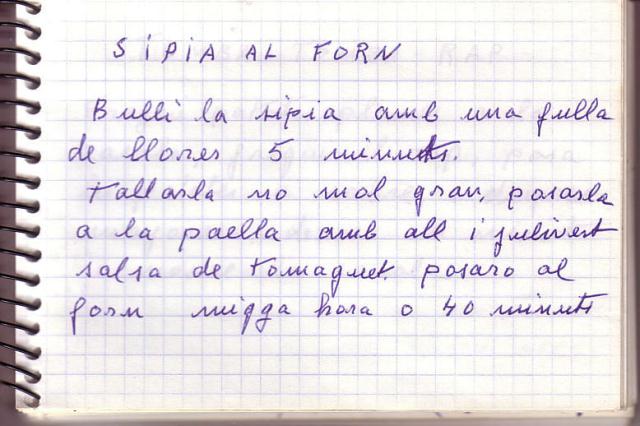 SIPIA AL FORN
Bulli la sipia amb una fulla
de llorer 5 minuts.
tallarla no mol gran, posarla
a la paella amb all i julivert
salsa de tomaquet. posaro al
forn migga hora o 40 minuts